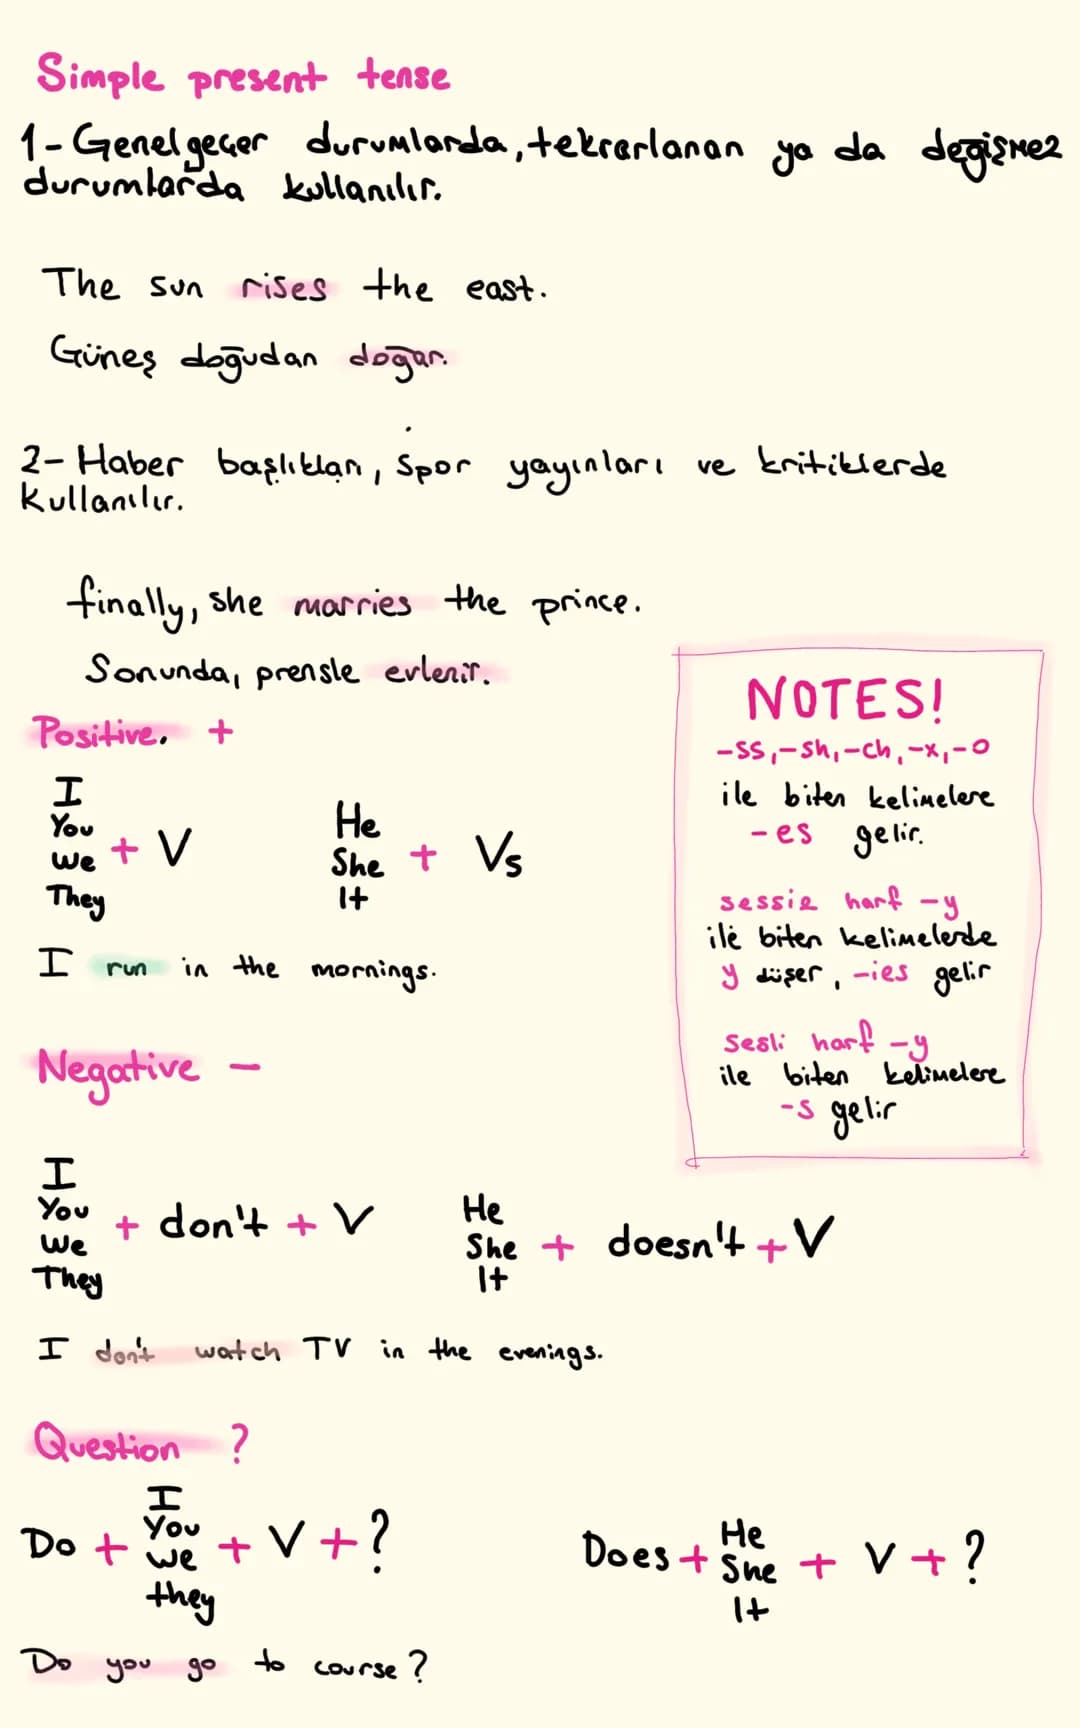 Simple present tense
1-Genelgeçer durumlarda, tekrarlanan ya da değişmez
durumlarda kullanılır.
The sun rises the east.
Güneş doğudan doğar.
2- Haber başlıkları, spor yayınları ve kritiklerde
kullanılır.
finally, she marries the prince.
Sonunda, prensle evlenir.
Positive. +
I
You
We
They
+ V
He
She
It
+ Vs
I run in the mornings.
NOTES!
-ss,-sh,-ch,-x,-o
ile biten kelimelere
-es gelir.
sessiz harf -y
ile biten kelimelerde
y düşer, -ies gelir
Sesli harf -y
ile biten kelimelere
-s gelir
Negative -
I
You
We
They
+ don't + V
He
She
It
+ doesn't + V
I don't watch TV in the evenings.
Question ?
Do +
I
You
we
they
+ V + ?
Does +
He
She
It
+ V + ?
Do you go to course?